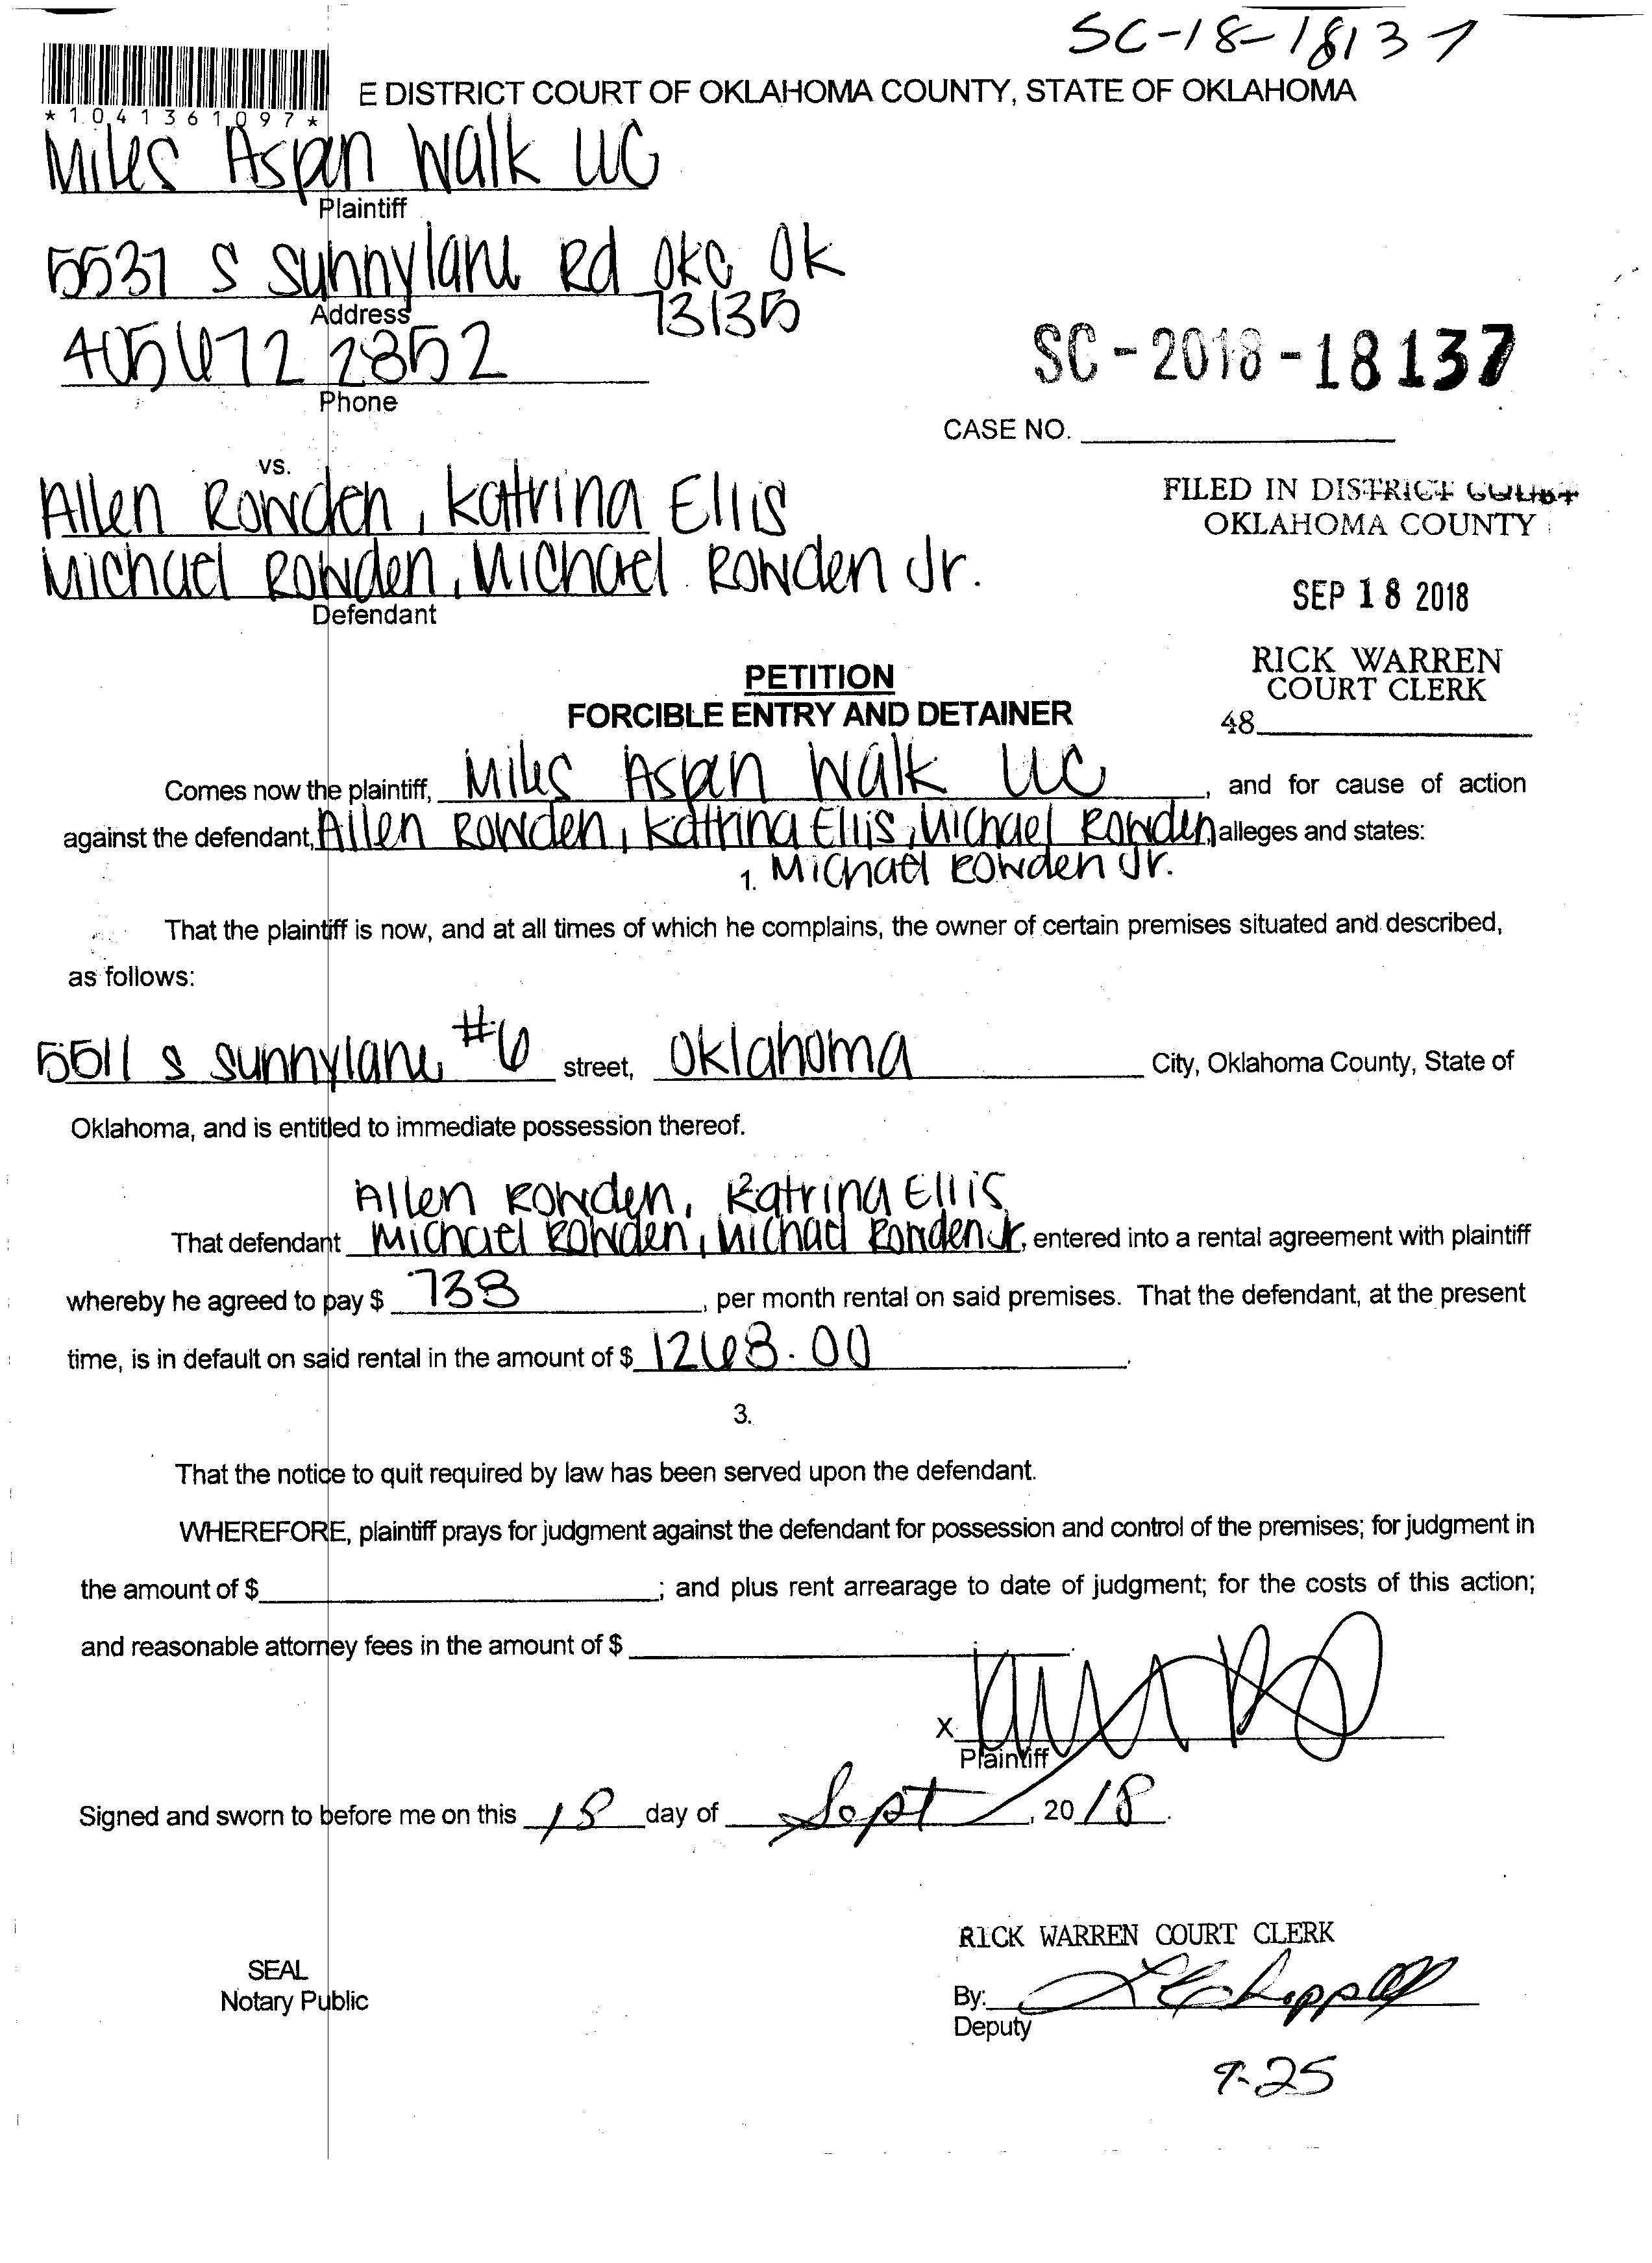 SC-18-18137
E DISTRICT COURT OF OKLAHOMA COUNTY, STATE OF OKLAHOMA
*1041361097*
Miles Aspen Walk LLC
Plaintiff
5537 S Sunnylane Rd OKC OK
Address
73135
405 672 2852
Phone
SC-2018-18137
CASE NO.
vs.
Allen Rowden, Katrina Ellis
Michael Rowden, Michael Rowden Jr.
Defendant
FILED IN DISTRICT COURT
OKLAHOMA COUNTY
SEP 18 2018
RICK WARREN
COURT CLERK
48
PETITION
FORCIBLE ENTRY AND DETAINER
Comes now the plaintiff, Miles Aspen Walk LLC, and for cause of action
against the defendant, Allen Rowden, Katrina Ellis, Michael Rowden, alleges and states:
1. Michael Rowden Jr.
That the plaintiff is now, and at all times of which he complains, the owner of certain premises situated and described,
as follows:
5511 S Sunnylane #6 street, Oklahoma City, Oklahoma County, State of
Oklahoma, and is entitled to immediate possession thereof.
Allen Rowden, Katrina Ellis
That defendant Michael Rowden, Michael Rowden Jr, entered into a rental agreement with plaintiff
whereby he agreed to pay $ 738, per month rental on said premises. That the defendant, at the present
time, is in default on said rental in the amount of $ 1268.00.
3.
That the notice to quit required by law has been served upon the defendant.
WHEREFORE, plaintiff prays for judgment against the defendant for possession and control of the premises; for judgment in
the amount of $ ; and plus rent arrearage to date of judgment; for the costs of this action;
and reasonable attorney fees in the amount of $ .
X
Plaintiff
Signed and sworn to before me on this 18 day of Sept, 2018.
RICK WARREN COURT CLERK
SEAL
Notary Public
By:
Deputy
9-25